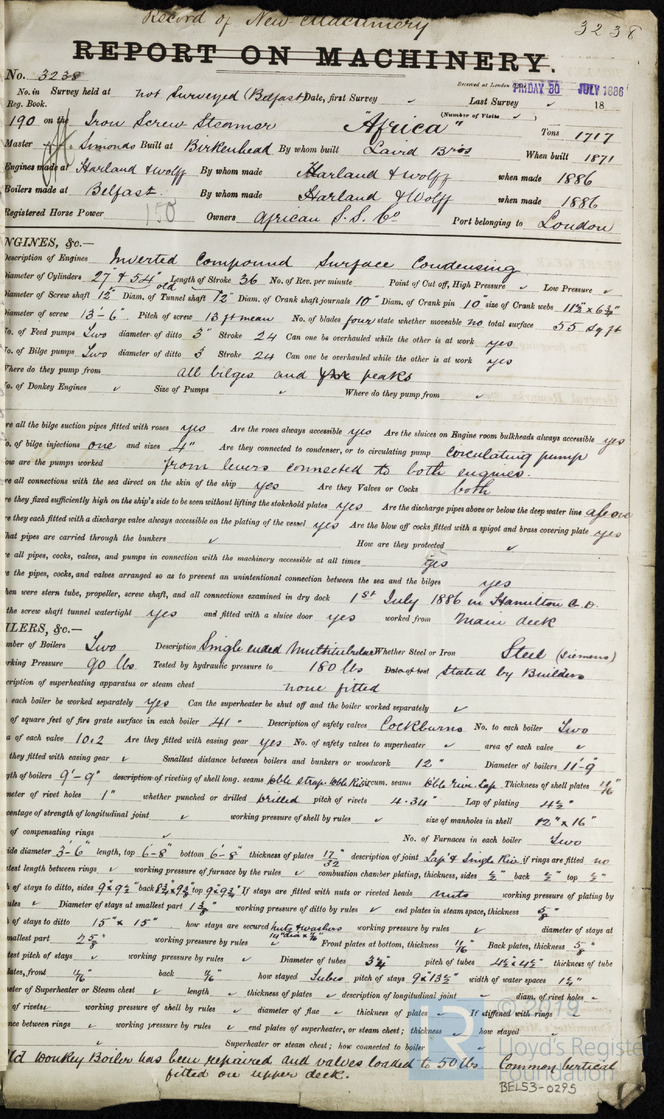 Record of New Machinery
3238
REPORT ON MACHINERY.
No. 3238
Received at London Office FRIDAY 30 JULY 1886
No. in Survey held at not Surveyed (Belfast) Date, first Survey ✓ Last Survey ✓ 18
Reg. Book. (Number of Visits ✓ )
190 on the Iron Screw Steamer "Africa" Tons 1717
Master Simonds Built at Birkenhead By whom built Laird Bros When built 1871
Engines made at Harland & Wolff By whom made Harland & Wolff when made 1886
Boilers made at Belfast. By whom made Harland & Wolff when made 1886
Registered Horse Power 150 Owners African S.S. Co Port belonging to London
NGINES, &c.—
Description of Engines Inverted Compound Surface Condensing
Diameter of Cylinders 27" & 54" Length of Stroke 36 No. of Rev. per minute Point of Cut off, High Pressure ✓ Low Pressure ✓
Diameter of Screw shaft 12" Diam. of Tunnel shaft old 12" Diam. of Crank shaft journals 10" Diam. of Crank pin 10" size of Crank webs 11½ x 6¾"
Diameter of screw 13'-6" Pitch of screw 13 ft mean No. of blades four state whether moveable no total surface 55 sq ft
No. of Feed pumps Two diameter of ditto 3" Stroke 24 Can one be overhauled while the other is at work yes
No. of Bilge pumps Two diameter of ditto 3" Stroke 24 Can one be overhauled while the other is at work yes
Where do they pump from all bilges and peaks
No. of Donkey Engines ✓ Size of Pumps ✓ Where do they pump from ✓
re all the bilge suction pipes fitted with roses yes Are the roses always accessible yes Are the sluices on Engine room bulkheads always accessible yes
o. of bilge injections one and sizes 4" Are they connected to condenser, or to circulating pump circulating pump
ow are the pumps worked from levers connected to both engines.
re all connections with the sea direct on the skin of the ship yes Are they Valves or Cocks both
re they fixed sufficiently high on the ship's side to be seen without lifting the stokehold plates yes Are the discharge pipes above or below the deep water line above
re they each fitted with a discharge valve always accessible on the plating of the vessel yes Are the blow off cocks fitted with a spigot and brass covering plate yes
hat pipes are carried through the bunkers ✓ How are they protected ✓
re all pipes, cocks, valves, and pumps in connection with the machinery accessible at all times yes
re the pipes, cocks, and valves arranged so as to prevent an unintentional connection between the sea and the bilges yes
hen were stern tube, propeller, screw shaft, and all connections examined in dry dock 1st July 1886 in Hamilton G. D.
the screw shaft tunnel watertight yes and fitted with a sluice door yes worked from Main deck
ILERS, &c.—
mber of Boilers Two Description Single ended Multitubular Whether Steel or Iron Steel (Siemens)
rking Pressure 90 lbs. Tested by hydraulic pressure to 180 lbs Date of test Stated by Builders
cription of superheating apparatus or steam chest none fitted
each boiler be worked separately yes Can the superheater be shut off and the boiler worked separately ✓
of square feet of fire grate surface in each boiler 41" Description of safety valves Cockburns No. to each boiler Two
a of each valve 10.2 Are they fitted with easing gear yes No. of safety valves to superheater ✓ area of each valve ✓
they fitted with easing gear ✓ Smallest distance between boilers and bunkers or woodwork 12" Diameter of boilers 11'-9"
gth of boilers 9'-9" description of riveting of shell long. seams Dble strap. Dble Riv. circum. seams Dble rive Lap Thickness of shell plates 11/16"
meter of rivet holes 1" whether punched or drilled Drilled pitch of rivets 4.34" Lap of plating 4½"
centage of strength of longitudinal joint ✓ working pressure of shell by rules ✓ size of manholes in shell 12" x 16"
of compensating rings ✓ No. of Furnaces in each boiler Two
side diameter 3'-6" length, top 6'-8" bottom 6'-8" thickness of plates 17/32 description of joint Lap & Single Riv. if rings are fitted no
atest length between rings ✓ working pressure of furnace by the rules ✓ combustion chamber plating, thickness, sides ½" back ½" top ½"
h of stays to ditto, sides 9" x 9½" back 8¾ x 9½" top 9 x 9¾" If stays are fitted with nuts or riveted heads nuts working pressure of plating by
ules ✓ Diameter of stays at smallest part 1⅜" working pressure of ditto by rules ✓ end plates in steam space, thickness ⅝"
h of stays to ditto 15" x 15" how stays are secured nuts & washers working pressure by rules ✓ diameter of stays at
mallest part 2⅝" working pressure by rules ✓ Front plates at bottom, thickness 11/16 Back plates, thickness ⅝"
test pitch of stays ✓ working pressure by rules ✓ Diameter of tubes 3¼" pitch of tubes 4½ x 4½" thickness of tube
lates, front 11/16 back 11/16 how stayed Tubes pitch of stays 9 x 13½" width of water spaces 1¼"
meter of Superheater or Steam chest ✓ length ✓ thickness of plates ✓ description of longitudinal joint ✓ diam. of rivet holes ✓
of rivets ✓ working pressure of shell by rules ✓ diameter of flue ✓ thickness of plates ✓ If stiffened with rings ✓
nce between rings ✓ working pressure by rules ✓ end plates of superheater, or steam chest; thickness ✓ how stayed ✓
Superheater or steam chest; how connected to boiler ✓
ld Donkey Boiler has been repaired and valves loaded to 50 lbs Common vertical
fitted on upper deck.
© 2019
Lloyd's Register
Foundation
BEL53-0295